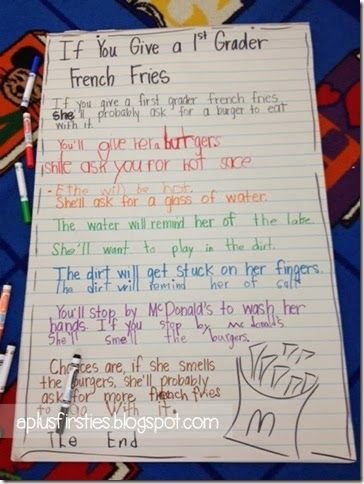 If You Give a 1st Grader
French Fries
If you give a first grader french fries
she'll probably ask for a burger to eat
with it.
You'll give her a burgers
shile ask you for hot sace
- E the will be hot.
She'll ask for a glass of water.
The water will remind her of the lake.
She'll want to play in the dirt.
The dirt will get stuck on her fingers.
Tha dirt will remind her of salt
You'll stop by McDonald's to wash her
hands. If you stop by mc donald's
She'll smell the burgers.
Chances are, if she smells
the burgers, she'll probably
ask for more french fries
to go with it.
The End
M
aplusfirsties.blogspot.com